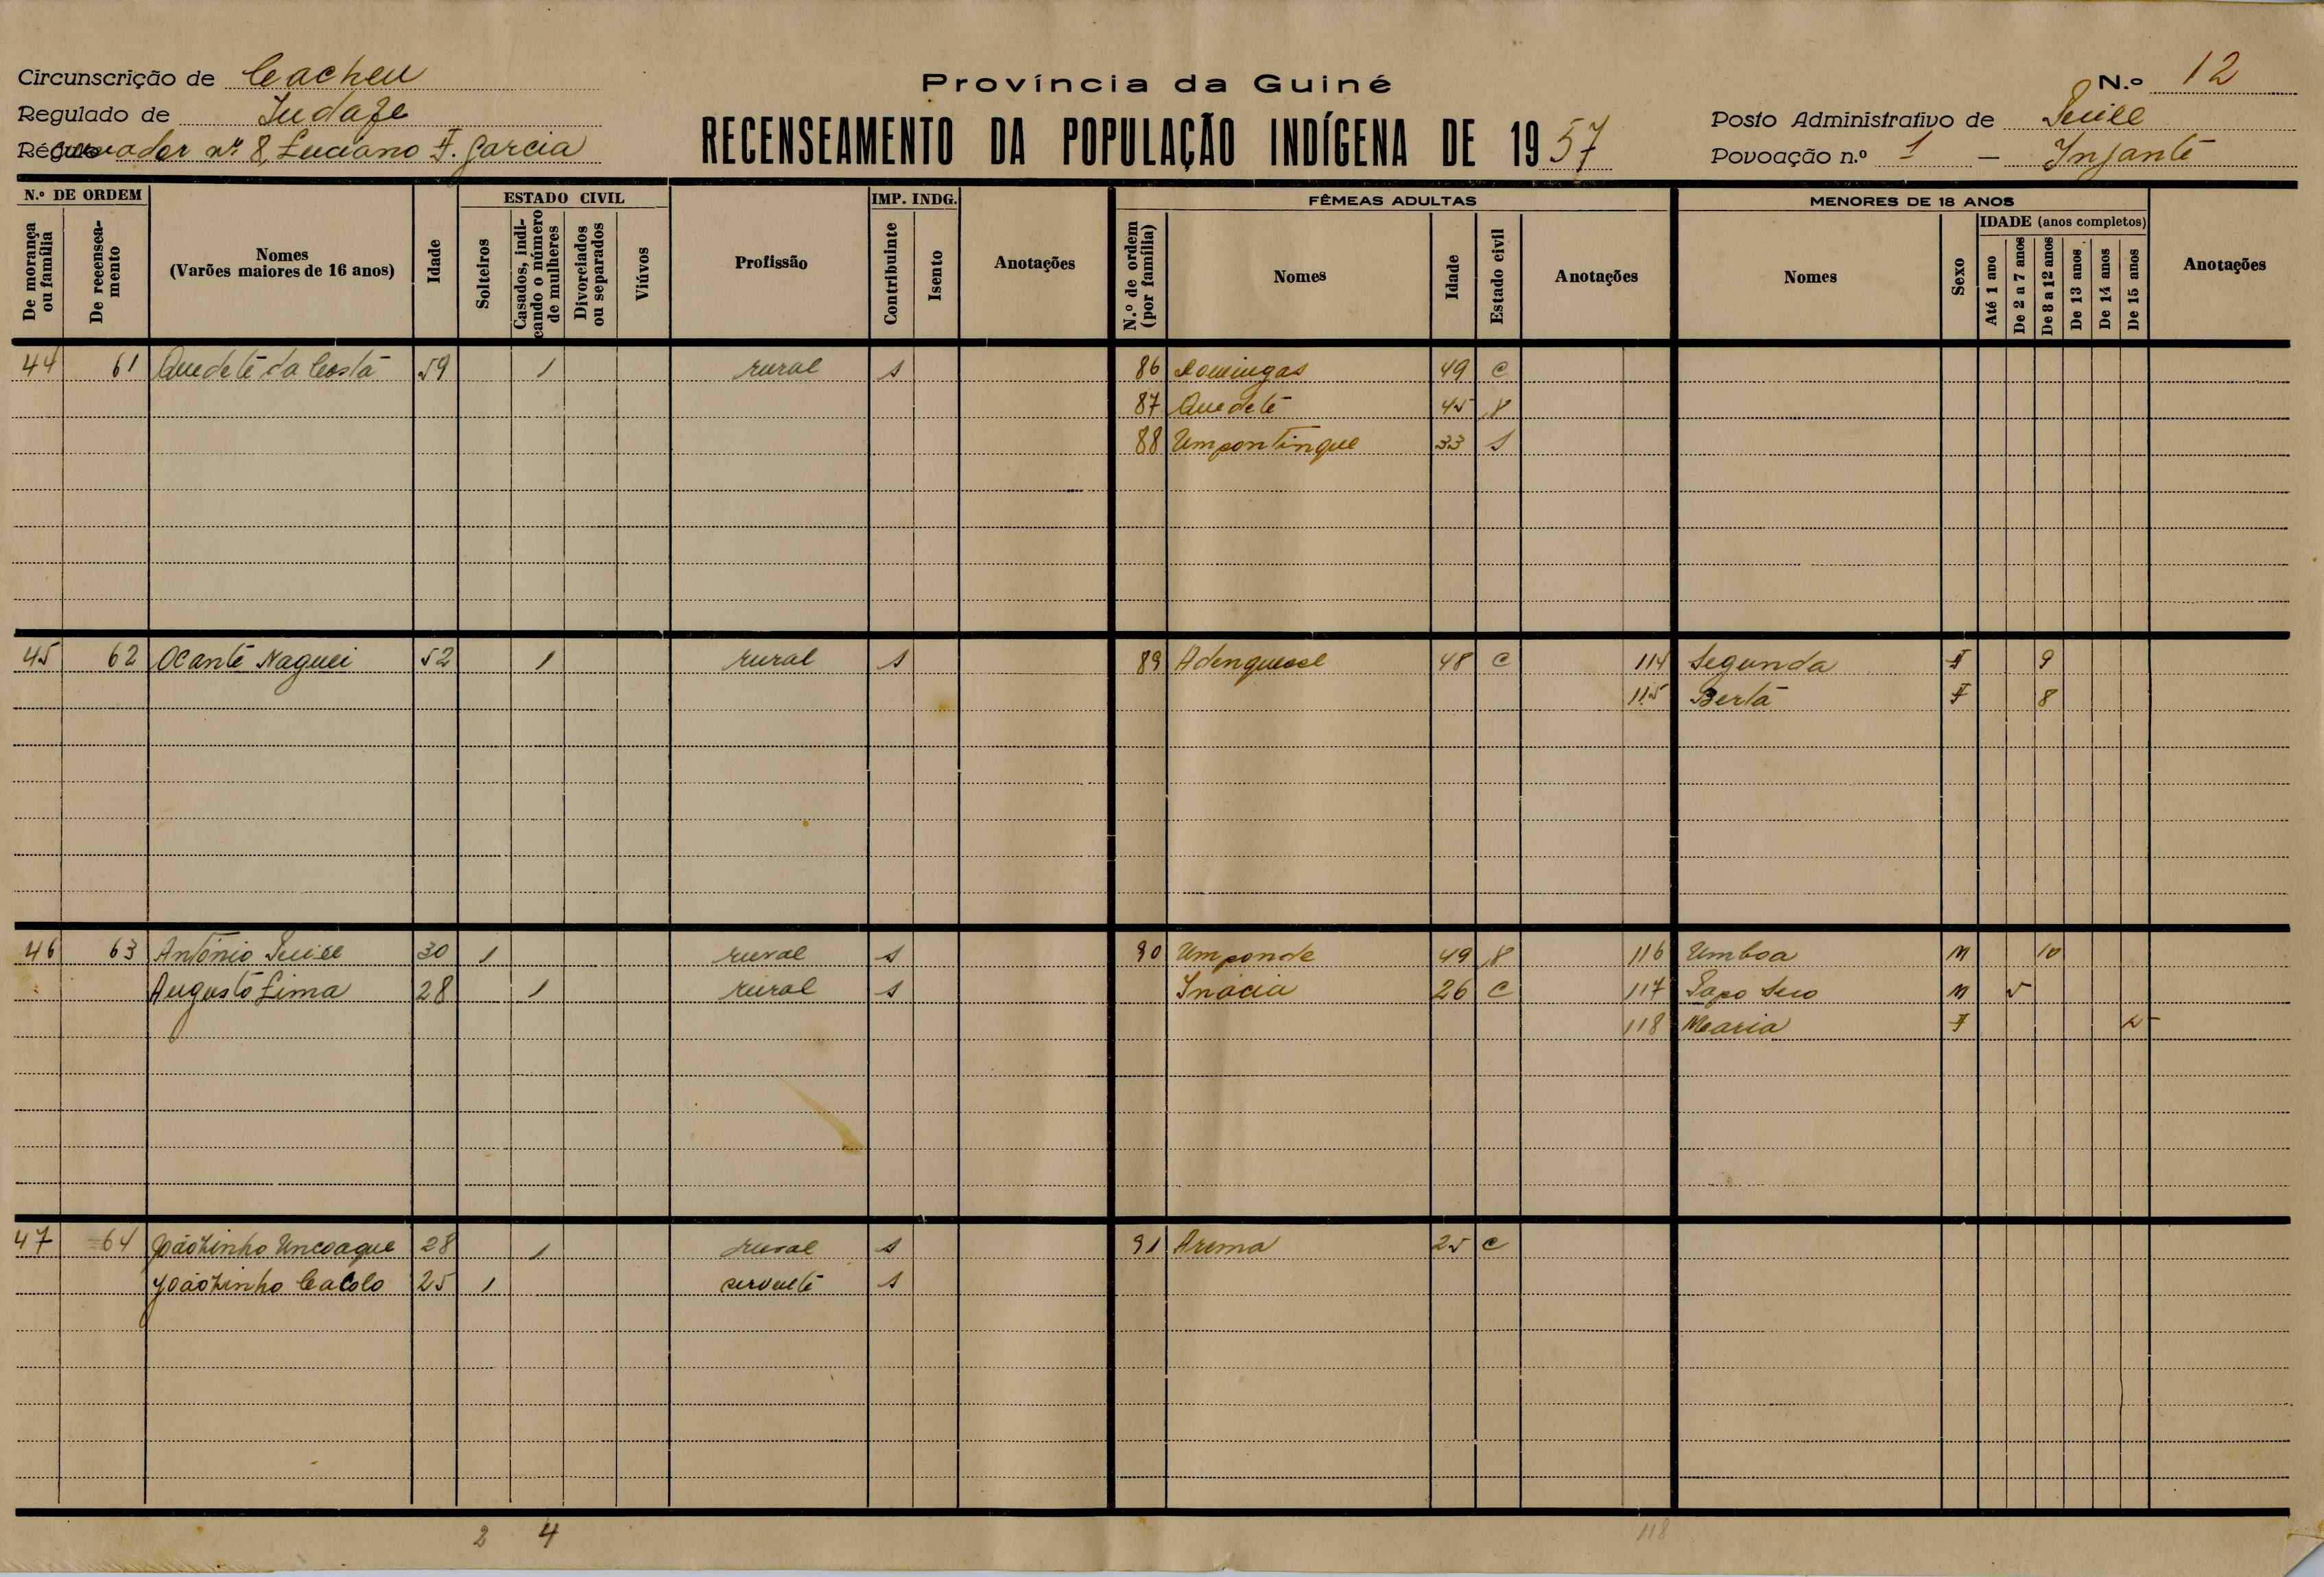 Circunscrição de Cacheu
Província da Guiné
N.º 12
Regulado de
RECENSEAMENTO DA POPULAÇÃO INDÍGENA DE 1957
Posto Administrativo de Suzee
Régulo nº 8, Luciano F. Garcia
Povoação n.º 1 — Injante
N.º DE ORDEM
De morança ou família
De reensea-mento
Nomes
(Varões maiores de 16 anos)
Idade
ESTADO CIVIL
Solteiros
Casados, indi-cando o número de mulheres
Divorciados ou separados
Viúvos
Profissão
IMP. INDG.
Contribuinte
Isento
Anotações
FÊMEAS ADULTAS
N.º de ordem (por família)
Nomes
Idade
Estado civil
Anotações
MENORES DE 18 ANOS
Nomes
Sexo
IDADE (anos completos)
Até 1 ano
De 2 a 7 anos
De 8 a 12 anos
De 13 anos
De 14 anos
De 15 anos
Anotações
44 61 Quedeté da Costa 59 1 rural s 86 Domingas 49 c
87 Quedeté 45
88 Umpontingue 33 s
45 62 Ocanté Naguei 52 1 rural s 89 48 c 114 Segunda F 9
115 Berta F 8
46 63 António 30 1 rural s 90 Umponde 49 116 Umboa M 10
Augusto Lima 28 1 rural s Inácia 26 c 117 Papo Seco M 5
118 Maria F
47 64 Joãozinho Uncoague 28 1 rural s 91 Arema 25 c
Joãozinho Catolo 25 1 servente s
2 4 118